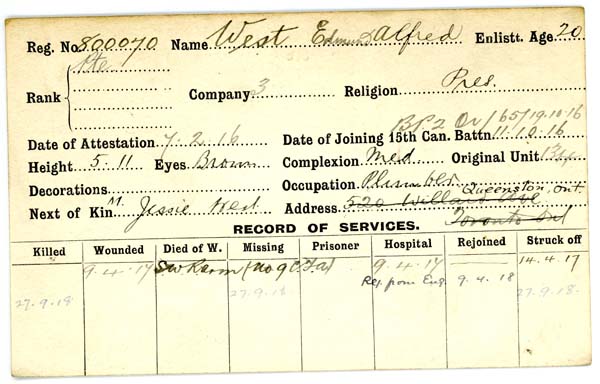 Reg. No. 800070 Name West Edmund Alfred Enlistt. Age 20
Rank Pte Company 3 Religion Pres.
BP2 Or/165/19.10.16
Date of Attestation 7.2.16 Date of Joining 15th Can. Battn. 11.10.16
Height 5.11 Eyes Brown Complexion Med Original Unit 134
Decorations Occupation Plumber Queenston, Ont.
Next of Kin M. Jessie West Address 520 Willard Ave
Toronto Ont
RECORD OF SERVICES.
Killed Wounded Died of W. Missing Prisoner Hospital Rejoined Struck off
9.4.17 SW R arm (No 9 C.F.A) 9.4.17 14.4.17
27.9.18 27.9.18 Rej. from Eng. 9.4.18 27.9.18.